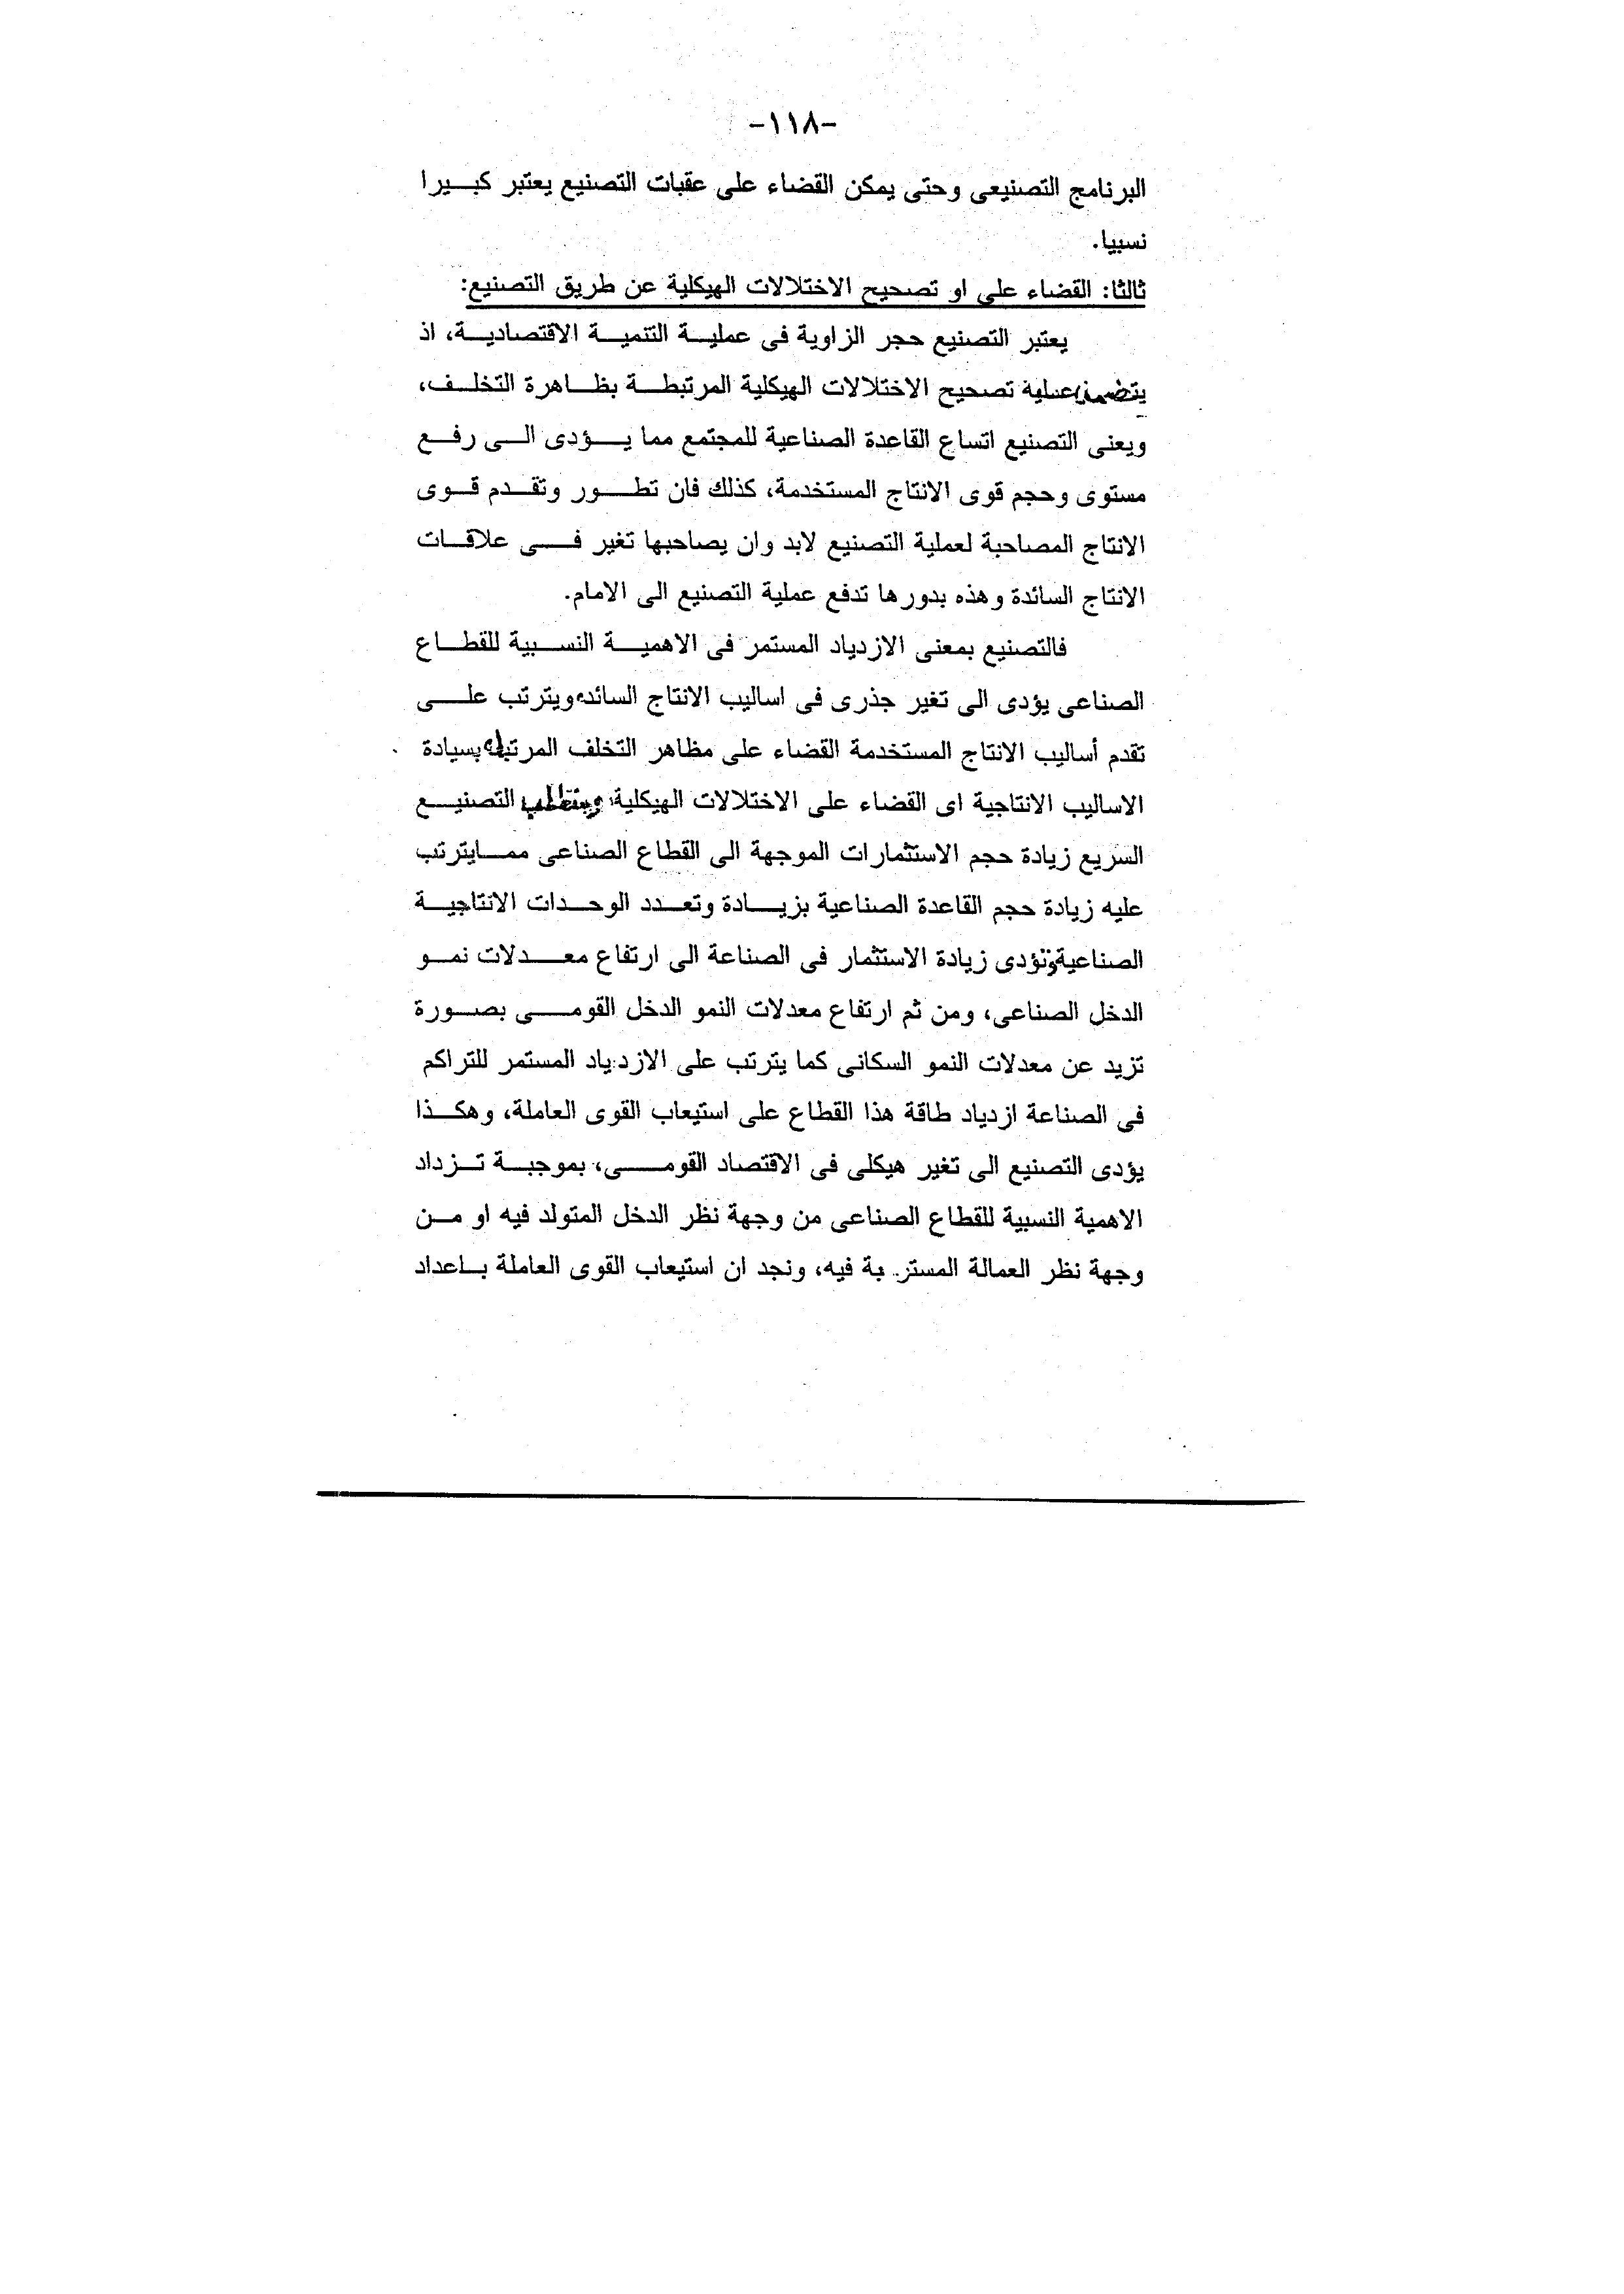 -١١٨-
البرنامج التصنيعى وحتى يمكن القضاء على عقبات التصنيع يعتبر كبيرا
نسبيا.
ثالثا: القضاء على او تصحيح الاختلالات الهيكلية عن طريق التصنيع:
يعتبر التصنيع حجر الزاوية فى عملية التتمية الاقتصادية، اذ
يتضمن عملية تصحيح الاختلالات الهيكلية المرتبطة بظاهرة التخلف،
ويعنى التصنيع اتساع القاعدة الصناعية للمجتمع مما يؤدى الى رفع
مستوى وحجم قوى الانتاج المستخدمة، كذلك فان تطور وتقدم قوى
الانتاج المصاحبة لعملية التصنيع لابد وان يصاحبها تغير فى علاقات
الانتاج السائدة وهذه بدورها تدفع عملية التصنيع الى الامام.
فالتصنيع بمعنى الازدياد المستمر فى الاهمية النسبية للقطاع
الصناعى يؤدى الى تغير جذرى فى اساليب الانتاج السائده ويترتب على
تقدم أساليب الانتاج المستخدمة القضاء على مظاهر التخلف المرتبطه بسيادة
الاساليب الانتاجية اى القضاء على الاختلالات الهيكلية ويتطلب التصنيع
السريع زيادة حجم الاستثمارات الموجهة الى القطاع الصناعى ممايترتب
عليه زيادة حجم القاعدة الصناعية بزيادة وتعدد الوحدات الانتاجية
الصناعية وتؤدى زيادة الاستثمار فى الصناعة الى ارتفاع معدلات نمو
الدخل الصناعى، ومن ثم ارتفاع معدلات النمو الدخل القومى بصورة
تزيد عن معدلات النمو السكانى كما يترتب على الازدياد المستمر للتراكم
فى الصناعة ازدياد طاقة هذا القطاع على استيعاب القوى العاملة، وهكذا
يؤدى التصنيع الى تغير هيكلى فى الاقتصاد القومى، بموجبة تزداد
الاهمية النسبية للقطاع الصناعى من وجهة نظر الدخل المتولد فيه او من
وجهة نظر العمالة فيه، ونجد ان استيعاب القوى العاملة باعداد